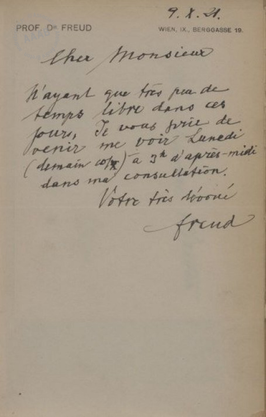 9. X. 21.
PROF. Dr FREUD
WIEN, IX., BERGGASSE 19.
Cher Monsieur
N'ayant que très peu de
temps libre dans ces
jours, Je vous prie de
venir me voir Lunedi
(demain 10/X) à 3h d'après-midi
dans ma consultation.
Vôtre très dévoué
freud